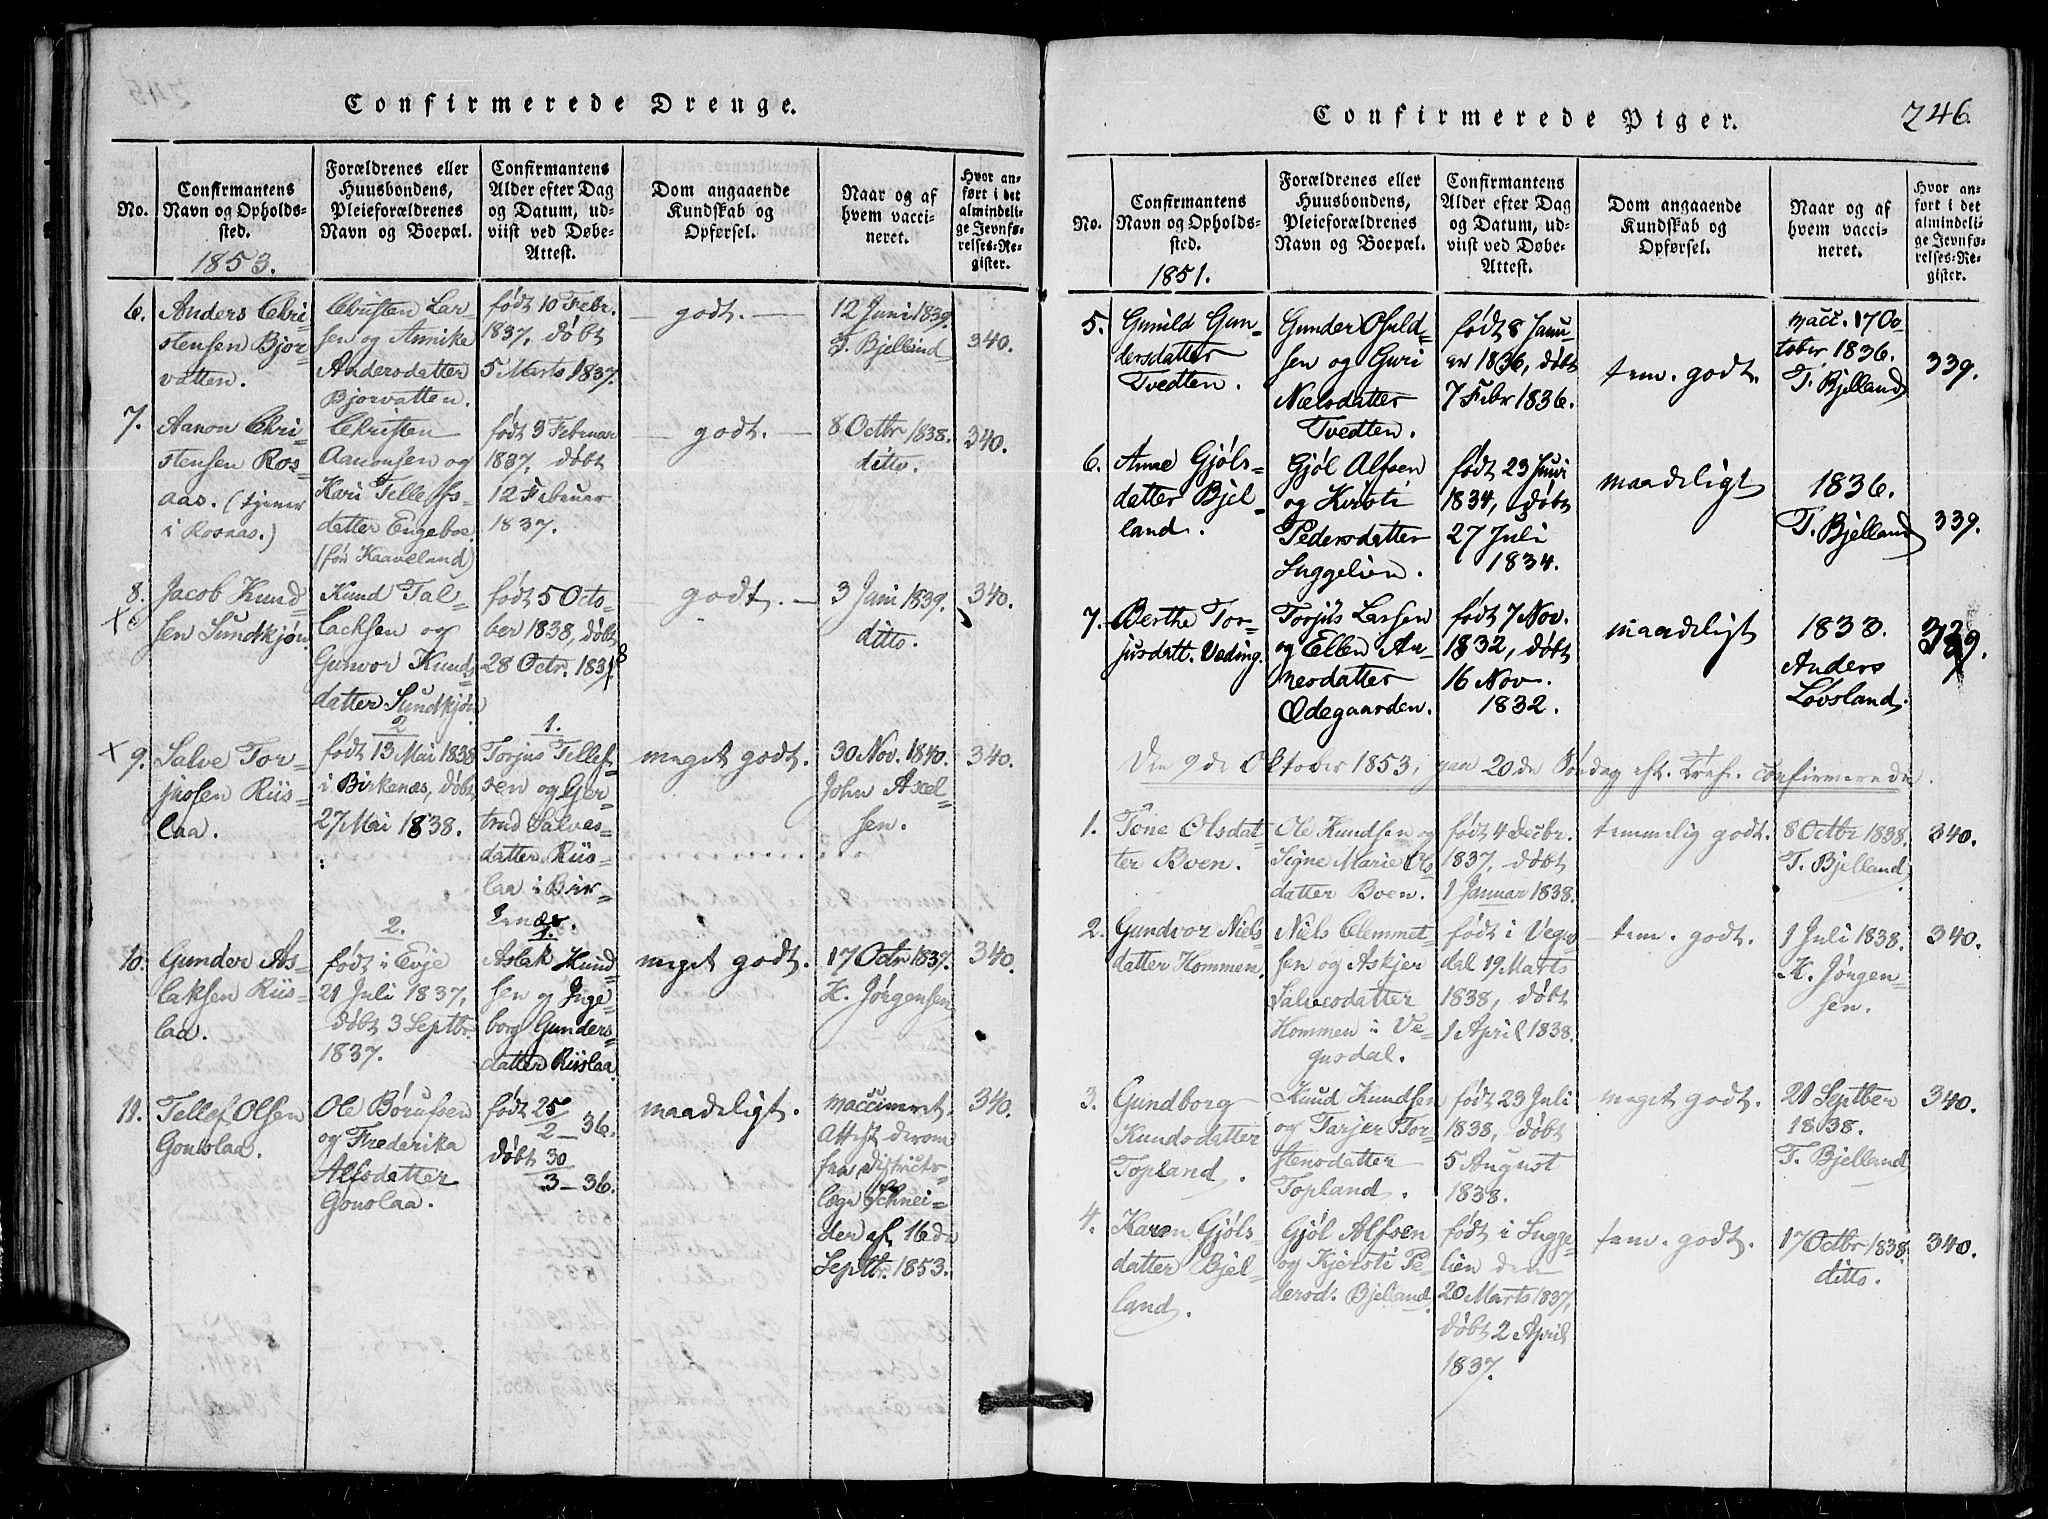 Confirmerede Drenge.
No.
Confirmantens
Navn og Opholds-
sted.
1853.
Forældrenes eller
Huusbondens,
Pleieforældrenes
Navn og Boepæl.
Confirmantens
Alder efter Dag
og Datum, ud-
viist ved Døbe-
Attest.
Dom angaaende
Kundskab og
Opførsel.
Naar og af
hvem vacci-
neret.
Hvor an-
ført i det
almindeli-
ge Jevnfø-
relses-Re-
gister.
6.
Anders Chri-
stensen Bjor-
vatten.
Christen Lar-
sen og Annike
Andersdatter
Bjorvatten.
født 10 Febr.
1837, døbt
5 Marts 1837.
godt.
12 Juni 1839.
T. Bjelland
340.
7.
Aanon Chri-
stensen Ros-
aas. (tjener
i Rosaas.)
Christen
Aanonsen og
Kari Tellefs-
datter Engeboe
(før Kaaveland)
født 3 Februar
1837, døbt
12 Februar
1837.
godt.
8 Octbr 1838.
ditto.
340.
8.
Jacob Knud-
sen Sundkjøn
Knud Tal-
lacksen og
Gunvor Knuds-
datter Sundkjøn
født 5 Octo-
ber 1838, døbt
28 Octr. 1838
godt.
3 Juni 1839.
ditto.
340.
x 9.
Salve Tor-
jusen Riis-
laa.
2
født 13 Mai 1838
i Birkenæs, døbt
27 Mai 1838.
1.
Torjus Tellef-
sen og Ger-
trud Salves-
datter Riis-
laa i Bir-
kenæs.
meget godt.
30 Nov. 1840.
John Axel-
sen.
340.
10.
Gunder As-
laksen Riis-
laa.
2.
født i Evje
21 Juli 1837,
døbt 3 Septbr.
1837.
1.
Aslak Knud-
sen og Inge-
borg Gunders-
datter Riislaa.
meget godt.
17 Octr 1837.
K. Jørgensen
340.
11.
Tellef Olsen
Gouslaa.
Ole Børufsen
og Frederika
Alfsdatter
Gouslaa.
født 25/2 - 36.
døbt 30/3 - 36.
maadeligt.
vaccineret
Attest derom
fra District-
læge Schnei-
der af 16de
Septb. 1853.
340.
Confirmerede Piger.
246.
No.
Confirmantens
Navn og Opholds-
sted.
1851.
Forældrenes eller
Huusbondens,
Pleieforældrenes
Navn og Boepæl.
Confirmantens
Alder efter Dag
og Datum, ud-
viist ved Døbe-
Attest.
Dom angaaende
Kundskab og
Opførsel.
Naar og af
hvem vacci-
neret.
Hvor an-
ført i det
almindeli-
ge Jevnfø-
relses-Re-
gister.
5.
Gunild Gun-
dersdatter
Tvedten.
Gunder Osuld-
sen og Guri
Nielsdatter
Tvedten.
født 8 Janu-
ar 1836, døbt
7 Febr 1836.
tem. godt.
vacc. 17 Oc-
tober 1836.
T. Bjelland
339.
6.
Anne Gjøls-
datter Bjel-
land.
Gjøl Alfsen
og Kirsti
Pedersdatter
Suggelien.
født 23 Juni
1834, døbt
27 Juli
1834.
maadeligt
1836.
T. Bjelland
339.
7.
Berthe Tor-
jusdatt. Væding.
Torjus Larsen
og Ellen An-
nesdatter
Ødegaarden.
født 7 Nov.
1832, døbt
16 Nov.
1832.
maadeligt
1833.
Anders
Løvsland.
339.
Den 9de Oktober 1853, paa 20de Søndag eft. Tref. confirmerede.
1.
Tone Olsdat-
ter Boen.
Ole Knudsen og
Signe Marie Ols-
datter Boen.
født 4 Decbr.
1837, døbt
1 Januar 1838.
temmelig godt.
8 Octbr 1838.
T. Bjelland
340.
2.
Gundvor Niels-
datter Hommen.
Niels Clemmet-
sen og Askjer
Salvesdatter
Hommen i Ve-
gusdal.
født i Vegus-
dal 19 Marts
1838, døbt
1 April 1838.
tem. godt.
1 Juli 1838.
K. Jørgen-
sen.
340.
3.
Gundborg
Knudsdatter
Topland.
Knud Knudsen
og Tarjer Tor-
stensdatter
Topland.
født 23 Juli
1838, døbt
5 August
1838.
meget godt.
21 Septber
1838.
T. Bjelland
340.
4.
Karen Gjøls-
datter Bjel-
land.
Gjøl Alfsen
og Kjersti Pe-
dersd: Bjelland.
født i Sugge-
lien den
20 Marts 1837,
døbt 2 April
1837.
tem. godt.
17 Octbr 1838.
ditto.
340.